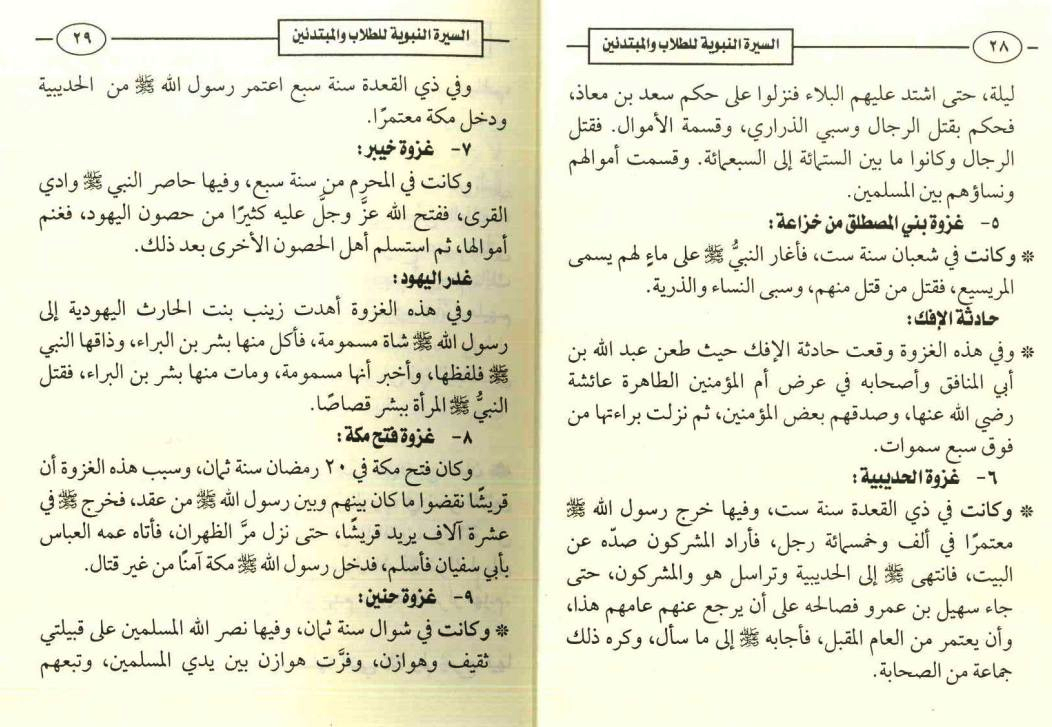 ٢٨
السيرة النبوية للطلاب والمبتدئين
ليلة، حتى اشتد عليهم البلاء فنزلوا على حكم سعد بن معاذ،
فحكم بقتل الرجال وسبي الذراري، وقسمة الأموال. فقتل
الرجال وكانوا ما بين الستمائة إلى السبعمائة. وقسمت أموالهم
ونساؤهم بين المسلمين.
٥- غزوة بني المصطلق من خزاعة:
* وكانت في شعبان سنة ست، فأغار النبيُّ ﷺ على ماءٍ لهم يسمى
المريسيع، فقتل من قتل منهم، وسبى النساء والذرية.
حادثة الإفك:
* وفي هذه الغزوة وقعت حادثة الإفك حيث طعن عبد الله بن
أبي المنافق وأصحابه في عرض أم المؤمنين الطاهرة عائشة
رضي الله عنها، وصدقهم بعض المؤمنين، ثم نزلت براءتها من
فوق سبع سموات.
٦- غزوة الحديبية:
* وكانت في ذي القعدة سنة ست، وفيها خرج رسول الله ﷺ
معتمرًا في ألف وخمسمائة رجل، فأراد المشركون صدّه عن
البيت، فانتهى ﷺ إلى الحديبية وتراسل هو والمشركون، حتى
جاء سهيل بن عمرو فصالحه على أن يرجع عنهم عامهم هذا،
وأن يعتمر من العام المقبل، فأجابه ﷺ إلى ما سأل، وكره ذلك
جماعة من الصحابة.
السيرة النبوية للطلاب والمبتدئين
٢٩
وفي ذي القعدة سنة سبع اعتمر رسول الله ﷺ من الحديبية
ودخل مكة معتمرًا.
٧- غزوة خيبر:
وكانت في المحرم من سنة سبع، وفيها حاصر النبي ﷺ وادي
القرى، ففتح الله عزَّ وجلَّ عليه كثيرًا من حصون اليهود، فغنم
أموالها، ثم استسلم أهل الحصون الأخرى بعد ذلك.
غدر اليهود:
وفي هذه الغزوة أهدت زينب بنت الحارث اليهودية إلى
رسول الله ﷺ شاة مسمومة، فأكل منها بشر بن البراء، وذاقها النبي
ﷺ فلفظها، وأخبر أنها مسمومة، ومات منها بشر بن البراء، فقتل
النبيُّ ﷺ المرأة ببشر قصاصًا.
٨- غزوة فتح مكة:
وكان فتح مكة في ٢٠ رمضان سنة ثمان، وسبب هذه الغزوة أن
قريشًا نقضوا ما كان بينهم وبين رسول الله ﷺ من عقد، فخرج ﷺ في
عشرة آلاف يريد قريشًا، حتى نزل مرَّ الظهران، فأتاه عمه العباس
بأبي سفيان فأسلم، فدخل رسول الله ﷺ مكة آمنًا من غير قتال.
٩- غزوة حنين:
* وكانت في شوال سنة ثمان، وفيها نصر الله المسلمين على قبيلتي
ثقيف وهوازن، وفرَّت هوازن بين يدي المسلمين، وتبعهم